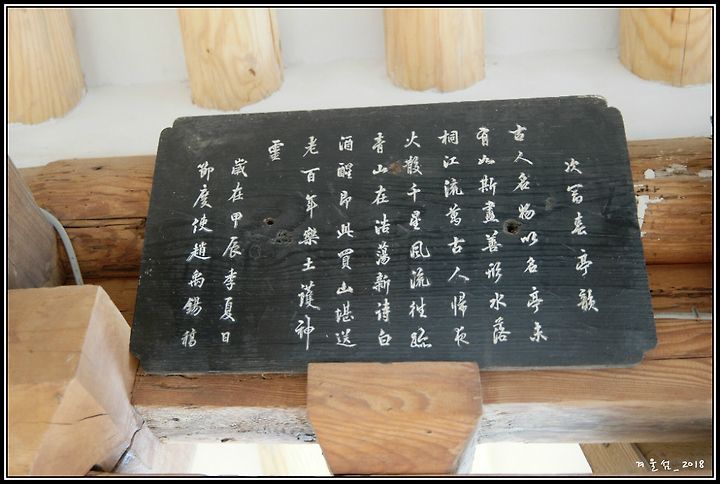 次冨春亭韻
古人名物以名亭未
有如斯盡善形水落
桐江流萬古人歸夜
火散千星風流往跡
青山在浩蕩新詩白
酒醒即此買山堪送
老百年樂土護神
靈
歲在甲辰季夏日
節度使趙禹錫稿
겨울섬_2018